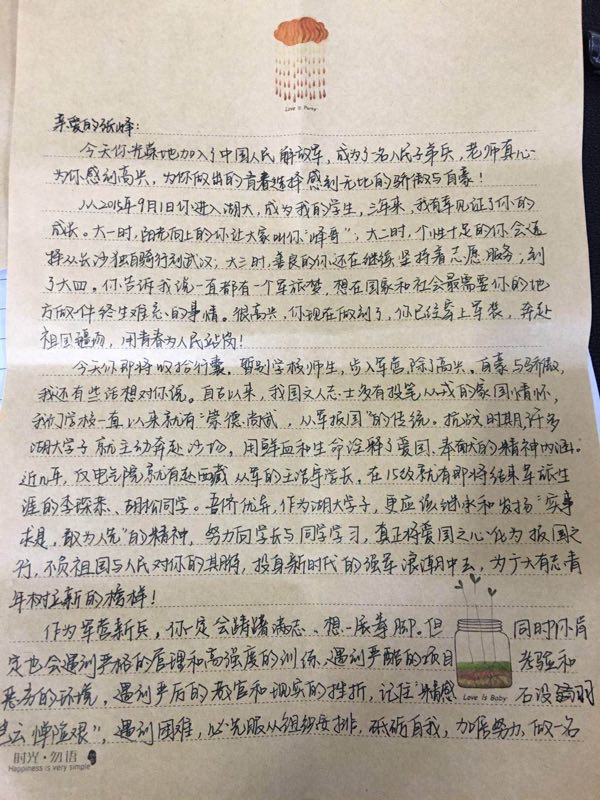 Love is Baby
亲爱的张峰：
今天你光荣地加入了中国人民解放军，成为了名人民子弟兵，老师真心
为你感到高兴，为你做出的青春选择感到无比的骄傲与自豪！
从2015年9月1日你进入湖大，成为我的学生，三年来，我有幸见证了你的
成长。大一时，阳光向上的你让大家叫你“峰哥”；大二时，个性十足的你会选
择从长沙独自骑行到武汉；大三时，善良的你还在继续坚持着志愿服务；到
了大四。你告诉我说一直都有一个军旅梦，想在国家和社会最需要你的地
方做件终生难忘的事情。很高兴，你现在做到了，你已经穿上军装，奔赴
祖国疆场，用青春为人民站岗！
今天你即将收拾行囊。暂别学校师生，步入军营，除了高兴、自豪与骄傲，
我还有些话想对你说。自古以来，我国文人志士多有投笔从戎的家国情怀，
我们学校一直以来就有“崇德尚武，从军报国”的传统。抗战时期许多
湖大学子就主动奔赴沙场，用鲜血和生命诠释了爱国、奉献的精神内涵。
近几年，仅电气院就有赴西藏从军的王浩宇学长。在15级就有即将结束军旅生
涯的李琛森、胡松同学。吾侪优异，作为湖大学子，更应该继承和发扬“实事
求是，敢为人先”的精神，努力向学长与同学学习，真正将爱国之心化为报国之
行，不负祖国与人民对你的期待，投身新时代的强军浪潮中去，为广大有志青
年树立新的榜样！
作为军营新兵，你一定会踌躇满志、想一展拳脚。但同时你肯
定也会遇到严格的管理和高强度的训练，遇到严酷的项目考验和
恶劣的环境，遇到严厉的教官和现实的挫折，记住“精感石没羽
岂云惮险艰”，遇到困难，必先服从组织安排，砥砺自我，加倍努力，做一名
Love is Baby
时光·勿语
Happiness is very simple